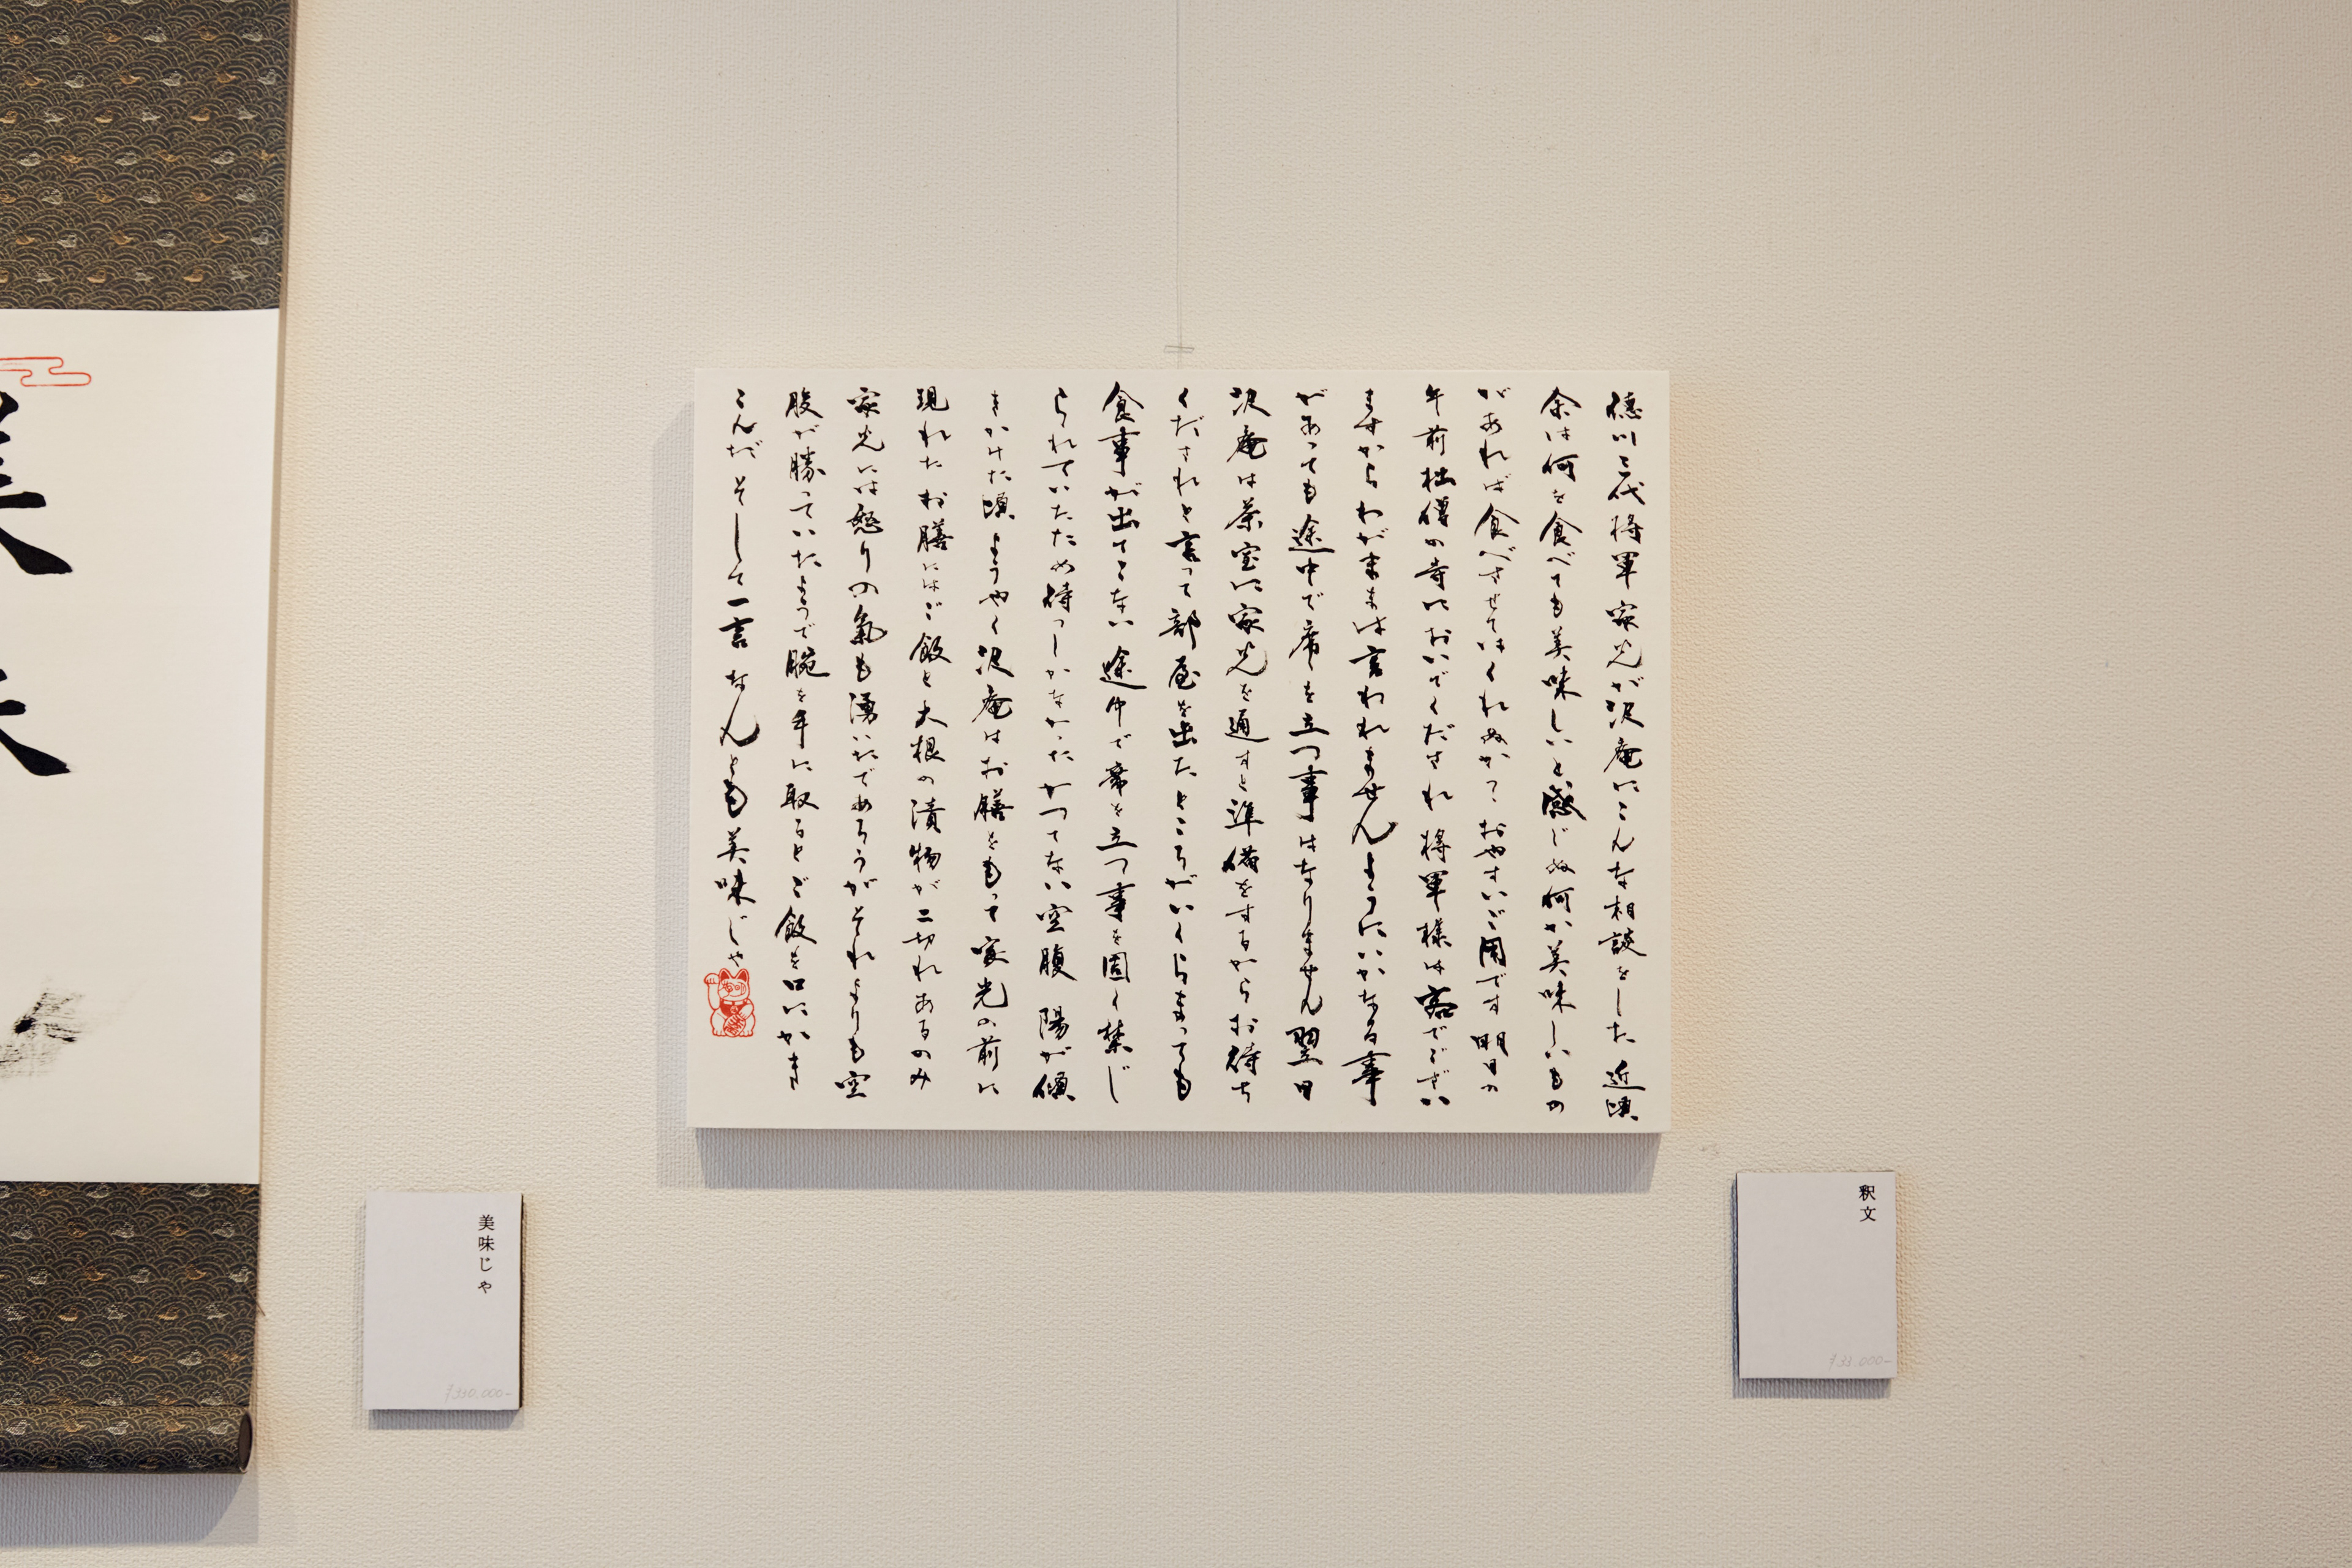 徳川三代将軍家光が沢庵にこんな相談をした 近頃
余は何を食べても美味しいと感じぬ何か美味しいもの
があれば食べさせてはくれぬかて おやすいご用です 明日の
午前拙僧の寺においでくだされ 将軍様は客でござい
ますからわがままは言われませんようにいかなる事
があっても途中で席を立つ事はなりません 翌日
沢庵は茶室に家光を通すと準備をするからお待ち
くだされと言って部屋を出たところがいくらまっても
食事が出てこない 途中で席を立つ事を固く禁じ
られていたため待つしかなかった かつてない空腹 陽が傾
きかけた頃 ようやく沢庵はお膳をもって家光の前に
現れた お膳にはご飯と大根の漬物が二切れあるのみ
家光には怒りの氣も湧いたであろうがそれよりも空
腹が勝っていたようで腕を手に取るとご飯を口にかき
こんだ そして一言 なんとも美味じゃ
美味じゃ
¥330,000-
釈文
¥33,000-